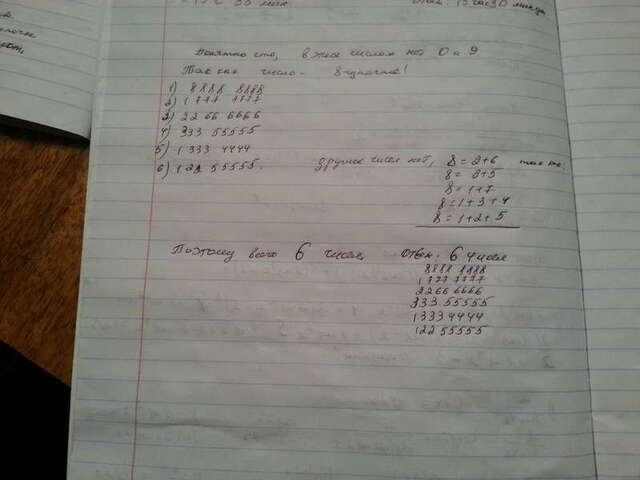 Понятно что, в этих числах нет 0 и 9
Так как число - 8-цифрное!
1) 8888 8888
2) 1 777 7777
3) 22 66 6666
4) 333 55555
5) 1 333 4444
6) 122 55555.
других чисел нет, 8=2+6
8= 3+5
8=1+7
8=1+3+4
8=1+2+5
Поэтому всего 6 чисел, Ответ: 6 чисел
8888 8888
1777 7777
2266 6666
333 55555
1333 4444
122 55555